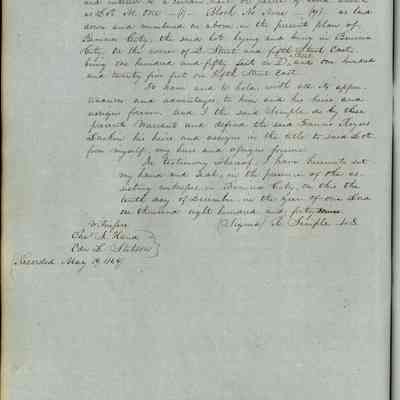 as Lot No. one - 1 - Block No. Nine (9) as laid
down and numbered as above in the present plan of
Benicia City, the said lot lying and being in Benicia
City on the corner of D. Street and fifth Street East,
being one hundred and fifty feet on D. and one hundred
and twenty five feet on Fifth Street East
To have and to hold, with all its appur-
tenances and advantages, to him and his heirs and
assigns forever. And I the said Semple do by these
presents Warrant and defend the said
his heirs and assigns in the title to said Lot
from myself, my heirs and assigns forever
In testimony whereof, I have hereunto set
my hand and Seal, in the presence of the as-
sisting witnesses, in Benicia City, on this the
tenth day of December, in the year of our Lord
one thousand eight hundred and forty
Witnesses
(Signed) R. Semple L.S.
Recorded May